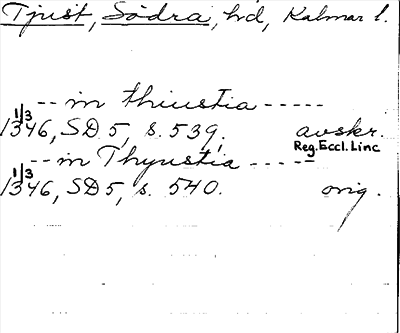 Tjust, Södra, hd, Kalmar l.
-- in thiustia -----
1/3
1346, SD 5, s. 539, avskr.
Reg. Eccl. Linc
-- in Thyustia -----
1/3
1346, SD 5, s. 540. orig.